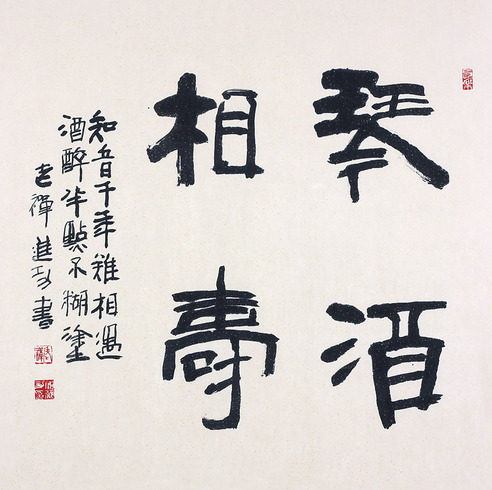 琴酒
相壽
知音千年難相遇
酒醉半點不糊塗
老禪進書